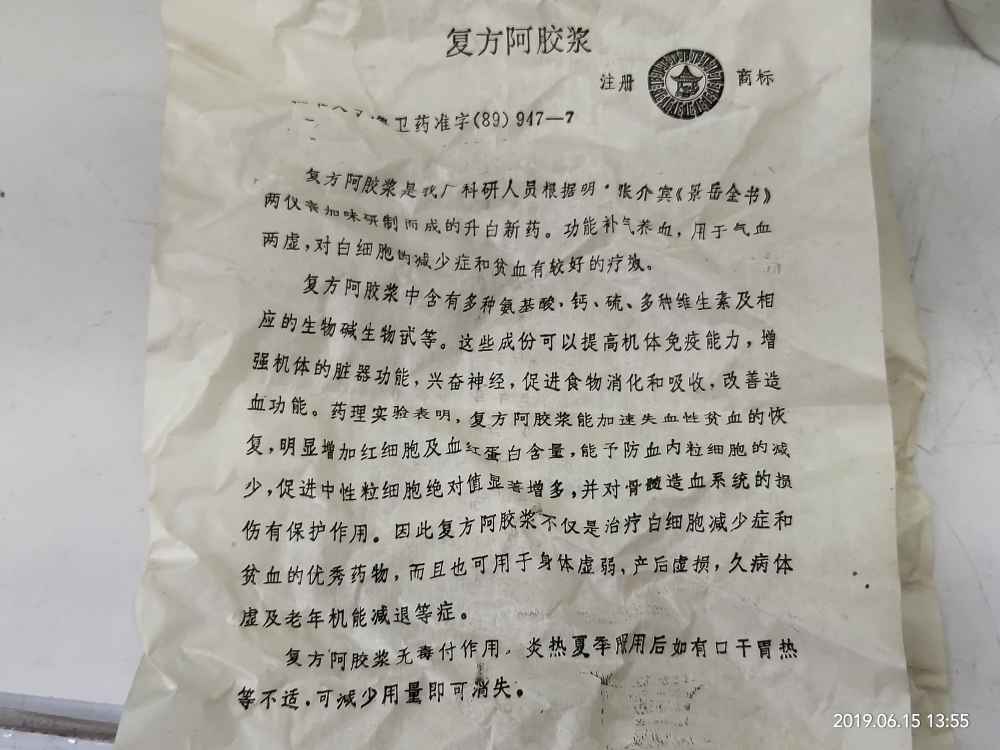 复方阿胶浆
注册 商标
卫药准字(89)947—7
复方阿胶浆是我厂科研人员根据明·张介宾《景岳全书》
两仪膏加味研制而成的升白新药。功能补气养血，用于气血
两虚，对白细胞的减少症和贫血有较好的疗效。
复方阿胶浆中含有多种氨基酸、钙、硫、多种维生素及相
应的生物碱生物甙等。这些成份可以提高机体免疫能力，增
强机体的脏器功能，兴奋神经，促进食物消化和吸收，改善造
血功能。药理实验表明，复方阿胶浆能加速失血性贫血的恢
复，明显增加红细胞及血红蛋白含量，能予防血内粒细胞的减
少，促进中性粒细胞绝对值显著增多，并对骨髓造血系统的损
伤有保护作用。因此复方阿胶浆不仅是治疗白细胞减少症和
贫血的优秀药物，而且也可用于身体虚弱、产后虚损，久病体
虚及老年机能减退等症。
复方阿胶浆无毒付作用，炎热夏季服用后如有口干胃热
等不适，可减少用量即可消失。
2019.06.15 13:55